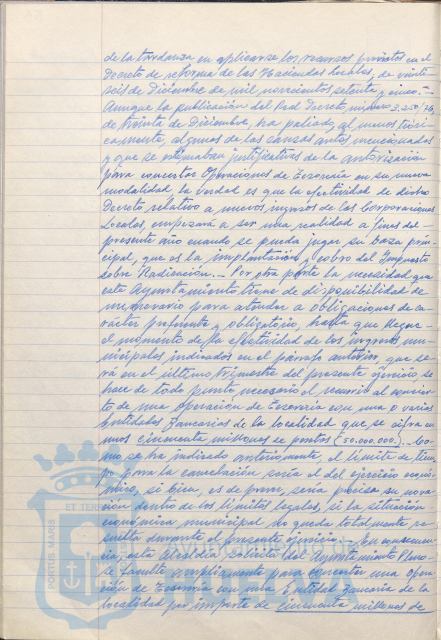 de la tardanza en aplicarse los recursos previstos en el
Decreto de reforma de las Haciendas Locales, de veinti-
seis de Diciembre de mil novecientos setenta y cinco.-
Aunque la publicación del Real Decreto número 3.250/76,
de treinta de Diciembre, ha paliado, al menos teóri-
camente, algunas de las causas antes mencionadas
y que se estimaban justificativas de la autorización
para concertar Operaciones de Tesorería en su nueva
modalidad la verdad es que la efectividad de dicho
Decreto relativo a nuevos ingresos de las Corporaciones
Locales, empezará a ser una realidad a fines del
presente año cuando se pueda jugar su baza prin-
cipal, que es la implantación y cobro del Impuesto
sobre Radicación.- Por otra parte la necesidad que
este Ayuntamiento tiene de disponibilidad de
numerario para atender a obligaciones de ca-
rácter preferente y obligatorio, hasta que llegue
el momento de la efectividad de los ingresos mu-
nicipales indicados en el párrafo anterior, que se-
rá en el último trimestre del presente ejercicio, se
hace de todo punto necesario el recurrir al concier-
to de una Operación de Tesorería con una o varias
Entidades Bancarias de la localidad que se cifra en
unos cincuenta millones de pesetas (50.000.000).- Co-
mo se ha indicado anteriormente, el límite de tiem-
po para la cancelación sería el del ejercicio econó-
mico, si bien, es de prever, sería precisa su nova-
ción dentro de los límites legales, si la situación
económica municipal no queda totalmente re-
suelta durante el presente ejercicio.- En consecuen-
cia, esta Alcaldía solicita del Ayuntamiento Pleno
se faculte ampliamente para concertar una Opera-
ción de Tesorería con una Entidad Bancaria de la
localidad por importe de Cincuenta millones de
PORTUS MARIS
ET TERRAE